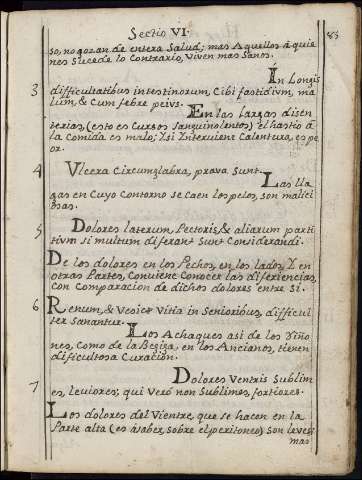 Sectio VI.
83
so, no gozan de entera Salud; mas Aquellos à quie
nes Sucede lo Contrario, Viven mas Sanos.
In Longis
3
difficultatibus intestinorum, Cibi fastidium, ma
lum, & Cum febre peius.
En las largas disen
terias, (esto es Cursos Sanguinolentos) el hastio â
la Comida es malo; Y si Interviene Calentura, es pe
or.
4
Vlcera Circumglabra, prava Sunt.
Las lla
gas en Cuyo Contorno se caen los pelos, son malici
osas.
5
Dolores laterum, Pectoris, & aliarum parti
tivm si multum diferant Sunt Considerandi.
De los dolores en los Pechos, en los lados, Y en
otras Partes, Conviene Conocer las diferiencias,
con Comparacion de dichos dolores entre si.
6
Renum, & Vesicę Vitia in Senioribus, difficul
ter Sanantur.
Los Achaques asi de los riño
nes, Como de la Begiga, en los Ancianos, tienen
dificultosa Curacion.
7
Dolores Ventris Sublim
es, leviores; qui Verò non Sublimes, fortiores.
Los dolores del Vientre, que se hacen en la
Parte alta (es âsaber, sobre el peritoneo) son leves
mas